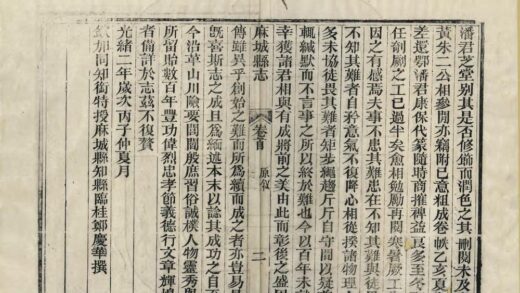 潘君芝堂別其是否修飾而潤色之其刪閱未及
黃朱二公相參閱亦竊附已意粗成卷帙乙亥夏
差還鄂潘君康保代篆隨時商搉裨益良多至冬
任剞劂之工已過半矣愈相勉勵再閱寒暑厥工
因之有感焉夫事不患其難患在不知其難與徒
不知其難者自矜意氣不復降心相從揆諸物理
多未協徒畏其難者矩步繩趨斤斤自守
輒緘默而不言事之所以終於難也今以百年未
幸獲諸君相與有成將前之美由此而彰後之盛因
麻城縣志 卷首 原敘 二
傳雖異乎創始之難而所爲續而成之者亦豈易
既喜斯志之成且爲緬述本末以諗其成功之自
今沿革山川險要閭閻殷庶習俗誠樸人物靈秀
所留貽數百年豐功偉烈忠孝節義德行文章輝
者備詳於志茲不復贅
光緒二年歲次丙子仲夏月
欽加同知銜特授麻城縣知縣臨桂鄭慶華撰